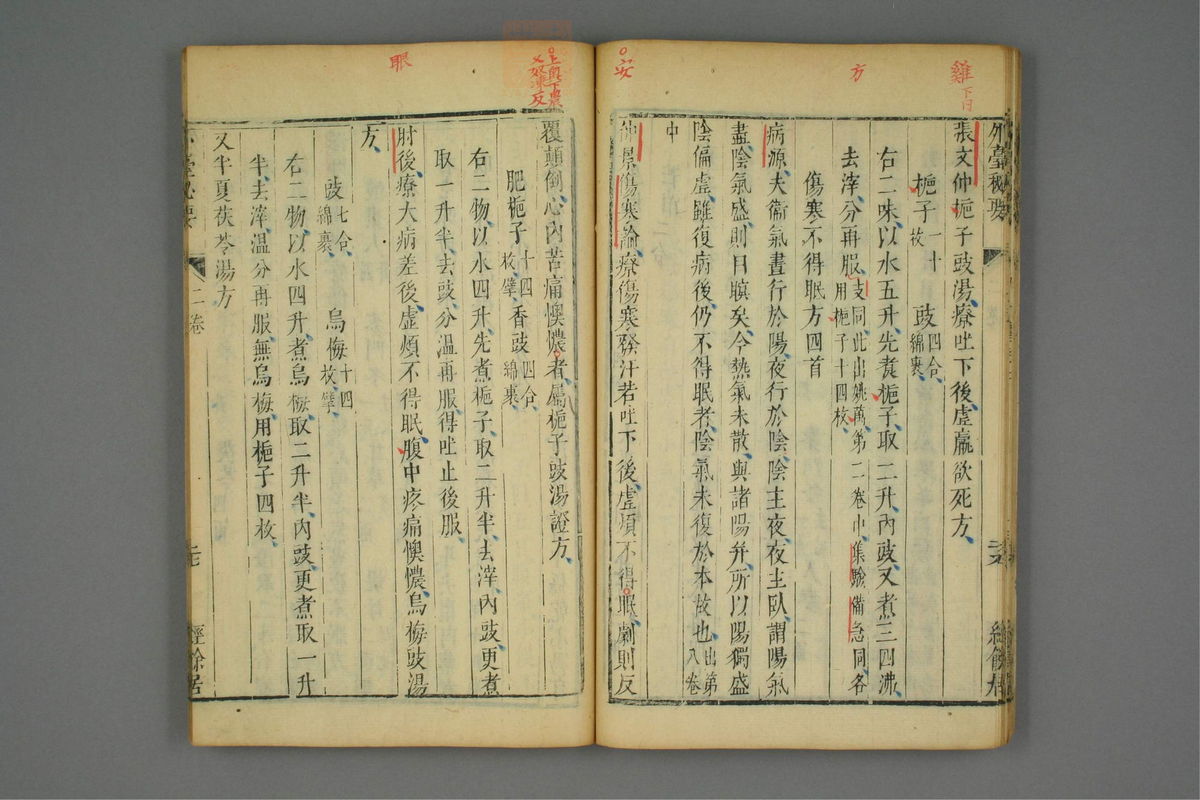 雞
方
安
外臺秘要
張文仲梔子豉湯療吐下後虛羸欲死方
梔子一十枚 豉四合綿裹
右二味以水五升先煮梔子取二升內豉又煮三四沸
去滓分再服支同此出姚萬第二卷中集驗備急同各用梔子十四枚
傷寒不得眠方四首
病源夫衞氣晝行於陽夜行於陰陰主夜夜主臥謂陽氣
盡陰氣盛則目瞑矣今熱氣未散與諸陽并所以陽獨盛
陰偏虛雖復病後仍不得眠者陰氣未復於本故也出第八卷
中
仲景傷寒論療傷寒發汗若吐下後虛煩不得眠劇則反
眼
覆顛倒心內苦痛懊憹者屬梔子豉湯證方
肥梔子十四枚擘 香豉四合綿裹
右二物以水四升先煮梔子取二升半去滓內豉更煮
取一升半去豉分溫再服得吐止後服
肘後療大病差後虛煩不得眠腹中疼痛懊憹烏梅豉湯
方
豉七合綿裹 烏梅十四枚擘
右二物以水四升煮烏梅取二升半內豉更煮取一升
半去滓溫分再服無烏梅用梔子四枚
又半夏茯苓湯方
臺秘要
二卷
經餘居